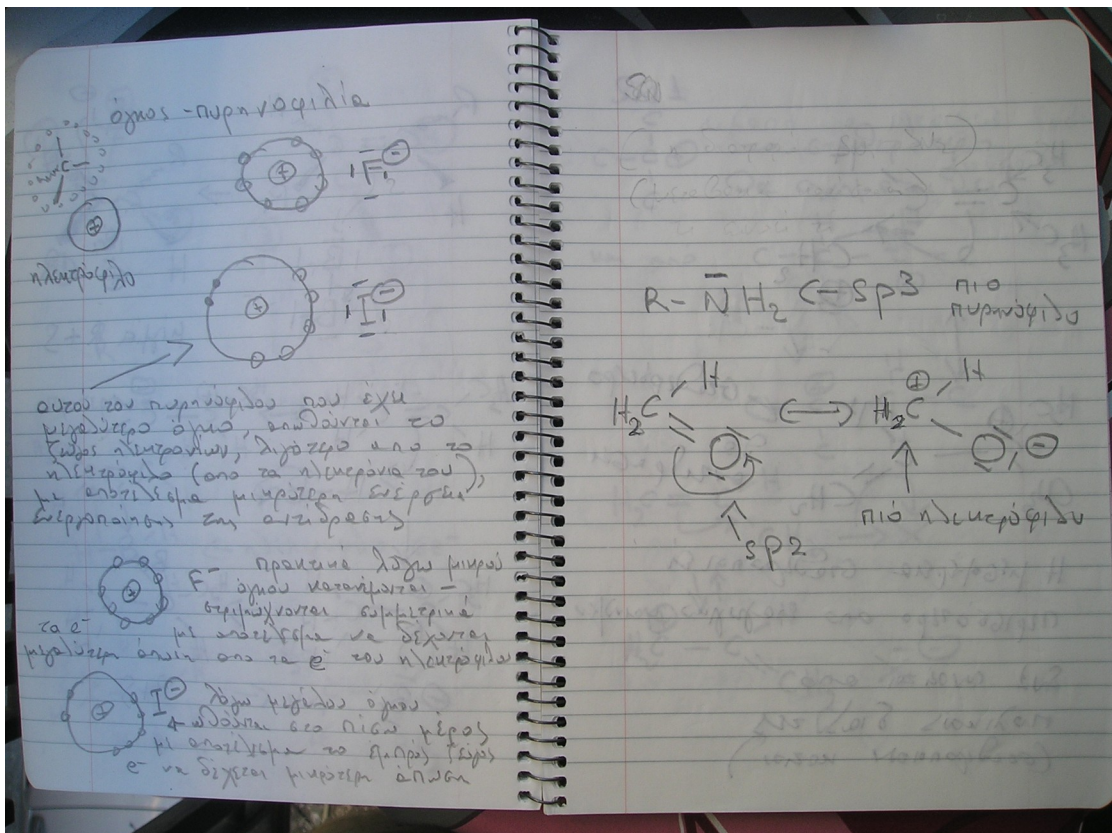 όγκος - πυρηνοφιλία
C
+
+
F -
ηλεκτρόφιλο
+
I -
αυτού του πυρηνόφιλου που έχει
μεγαλύτερο όγκο, απωθούνται το
ζεύγος ηλεκτρονίων, λιγότερο απο το
ηλεκτρόφιλο (απο τα ηλεκτρόνια του),
με αποτέλεσμα μικρότερη ενέργεια
ενεργοποίησης της αντίδρασης
+ F- πρακτικά λόγω μικρού
όγκου κατανέμονται -
στριμώχνονται συμμετρικά
τα e- με αποτέλεσμα να δέχονται
μεγαλύτερη άπωση απο τα e- του ηλεκτρόφιλου
+ I - λόγω μεγάλου όγκου
ωθούνται στο πίσω μέρος
με αποτέλεσμα το ζεύγος
e- να δέχεται μικρότερη άπωση
R - NH2 ← sp3 πιο
πυρηνόφιλο
H + H
H2C ↔ H2C
O O -
πιό ηλεκτρόφιλο
sp2